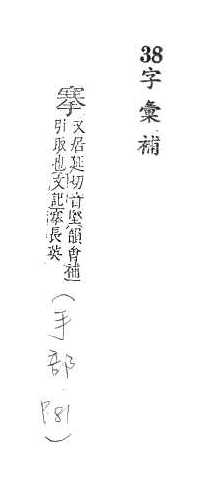 38字彙補
搴
又居延切音堅韻會補
引取也文記搴長英
(手部 P81)